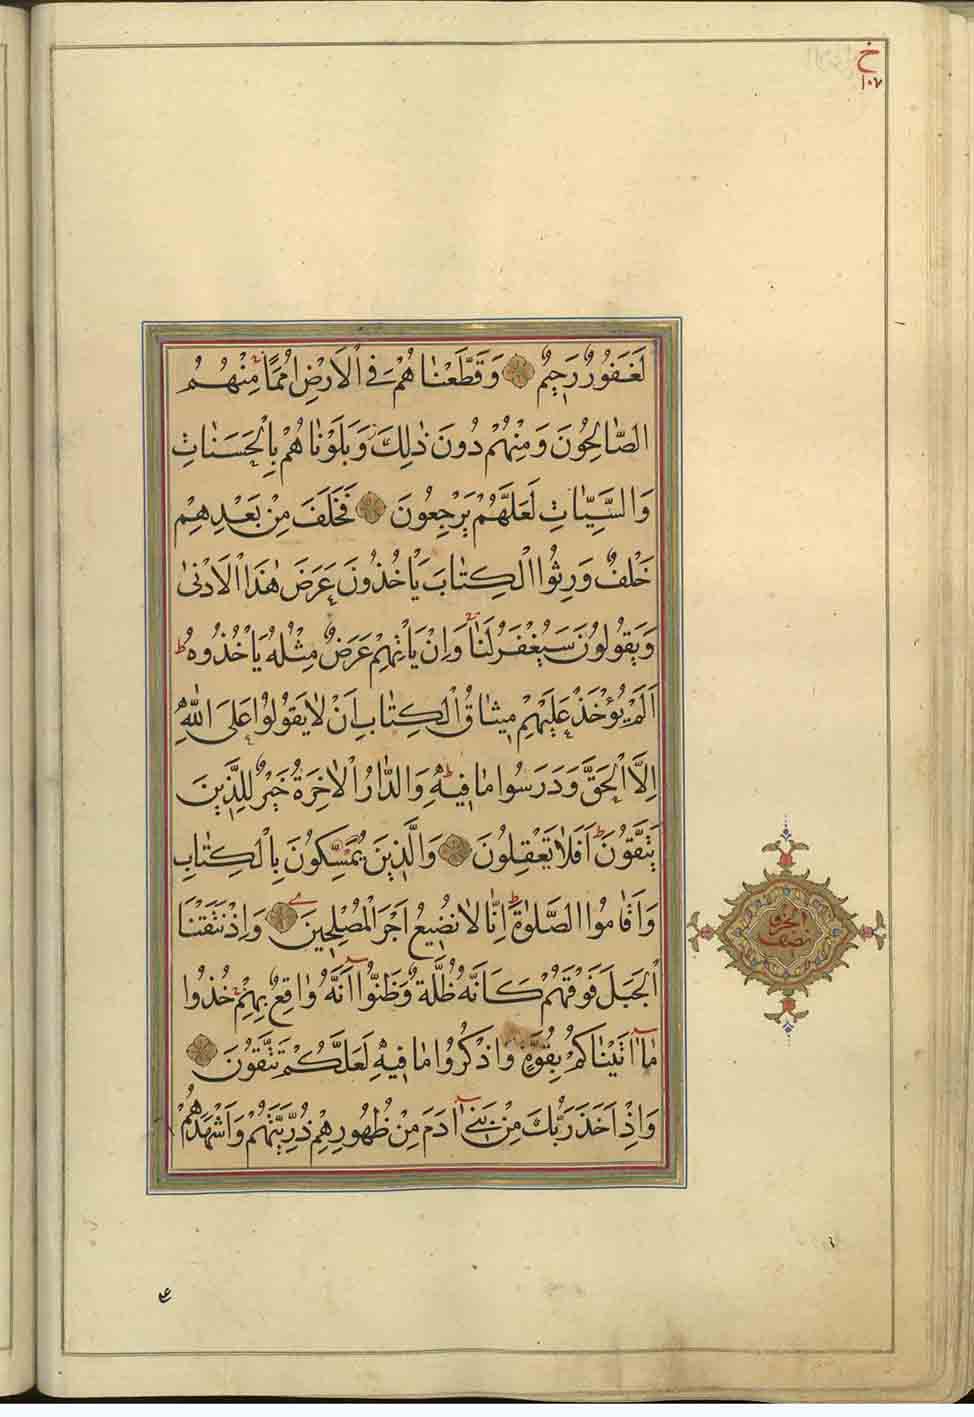 خ
١٠٧
لَغَفُورٌ رَحِيمٌ وَقَطَّعْنَاهُمْ فِي الْاَرْضِ اُمَمًا مِنْهُمُ
الصَّالِحُونَ وَمِنْهُمْ دُونَ ذٰلِكَ وَبَلَوْنَاهُمْ بِالْحَسَنَاتِ
وَالسَّيِّئَاتِ لَعَلَّهُمْ يَرْجِعُونَ فَخَلَفَ مِنْ بَعْدِهِمْ
خَلْفٌ وَرِثُوا الْكِتَابَ يَأْخُذُونَ عَرَضَ هٰذَا الْاَدْنٰى
وَيَقُولُونَ سَيُغْفَرُ لَنَا وَاِنْ يَأْتِهِمْ عَرَضٌ مِثْلُهُ يَأْخُذُوهُ ط
اَلَمْ يُؤْخَذْ عَلَيْهِمْ مِيثَاقُ الْكِتَابِ اَنْ لَا يَقُولُوا عَلَى اللّٰهِ
اِلَّا الْحَقَّ وَدَرَسُوا مَا فِيهِ ط وَالدَّارُ الْاٰخِرَةُ خَيْرٌ لِلَّذِينَ
يَتَّقُونَ ط اَفَلَا تَعْقِلُونَ وَالَّذِينَ يُمَسِّكُونَ بِالْكِتَابِ
وَاَقَامُوا الصَّلٰوةَ ط اِنَّا لَا نُضِيعُ اَجْرَ الْمُصْلِحِينَ وَاِذْ نَتَقْنَا
الْجَبَلَ فَوْقَهُمْ كَاَنَّهُ ظُلَّةٌ وَظَنُّوا اَنَّهُ وَاقِعٌ بِهِمْ خُذُوا
مَا اٰتَيْنَاكُمْ بِقُوَّةٍ وَاذْكُرُوا مَا فِيهِ لَعَلَّكُمْ تَتَّقُونَ
وَاِذْ اَخَذَ رَبُّكَ مِنْ بَنِي اٰدَمَ مِنْ ظُهُورِهِمْ ذُرِّيَّتَهُمْ وَاَشْهَدَهُمْ
نصف
الحزب